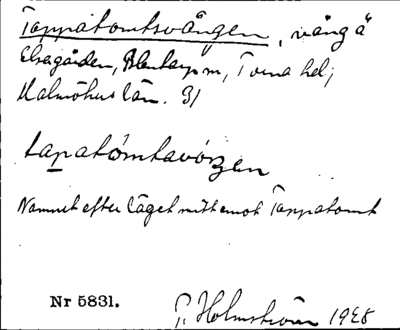 Tappatomtsvången, vång å
Elsagården, Blentarp sn, Torna hd;
Malmöhus län. 31
tapatomtavóŋen
Namnet efter läget mitt emot Tappatomt
Nr 5831. P. Holmström 1928